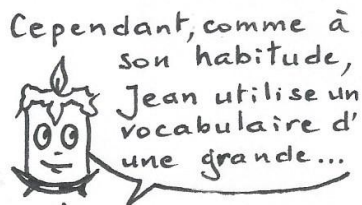 Cependant, comme à
son habitude,
Jean utilise un
vocabulaire d'
une grande...